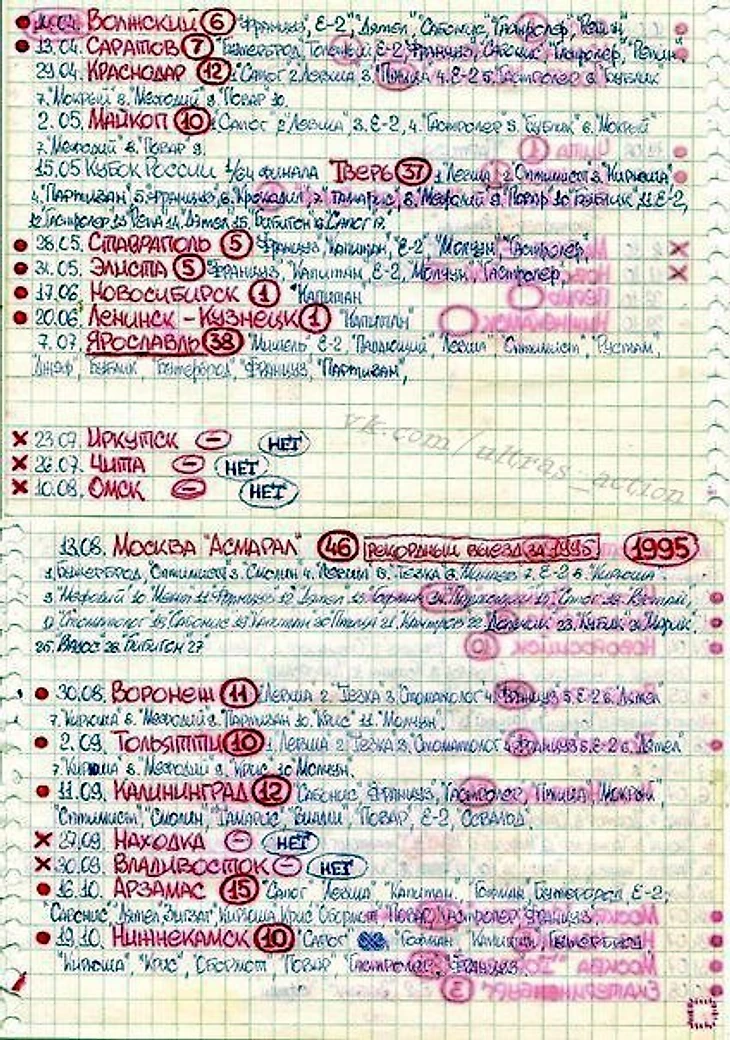 11.04. ВОЛЖСКИЙ 6 "Француз, Е-2", "Дятел", Сабонис, "Гастролер, "Репин"
13.04. САРАТОВ 7 "Бутерброд, Е-2, Француз, Сабонис, "Гастролер, "Репин,
29.04. КРАСНОДАР 12 1. "Сапог" 2. Левша 3. "Птица 4. Е-2 5. "Гастролер 6. "Бублик"
7. "Мокрый" 8. "Мефодий" 9. "Повар" 10.
2.05. МАЙКОП 10 1. "Сапог" 2. "Левша" 3. Е-2, 4. "Гастролер 5. "Бублик" 6. "Мокрый"
7. "Мефодий" 8. "Повар" 9.
15.05 КУБОК РОССИИ 1/64 ФИНАЛА ТВЕРЬ 37 1. "Левша" 2. "Оптимист" 3. "Кирюша"
4. "Партизан" 5. "Француз" 6. "Крокодил" 7. "Тамарис" 8. "Мефодий" 9. "Повар" 10. "Бублик" 11. Е-2,
12. "Гастролер 13. Репа 14. Дятел 15. Бибигон 16. Сапог 17.
28.05. СТАВРАПОЛЬ 5 "Француз, "Капитан, Е-2", "Молчун", "Гастролер,
31.05. ЭЛИСТА 5 "Француз, "Капитан, Е-2, Молчун, "Гастролер,
17.06. НОВОСИБИРСК 1 "Капитан
20.06. ЛЕНИНСК-КУЗНЕЦК 1 "Капитан"
7.07. ЯРОСЛАВЛЬ 38 "Мишель", Е-2, "Падающий", Левша" "Оптимист", "Рустам,
Бублик", "Бутерброд, "Француз, "Партизан",
vk.com/ultras_action
23.07. ИРКУТСК – НЕТ
26.07. ЧИТА – НЕТ
10.08. ОМСК – НЕТ
13.08. МОСКВА "АСМАРАЛ" 46 РЕКОРДНЫЙ ВЫЕЗД ЗА 1995 1995
1. Бутерброд, "Оптимист" 3. Смолин 4. Левша 5. Тезка 6. 7. Е-2, 8. "Кирюша"
9. "Мефодий" 10. Мент 11. Француз 12. Дятел 13. Гофман 14. 15. "Сапог"
17. "Стоматолог" 18. "Сабонис" 19. Капитан 20. Птица 21. 22. 23. Кубик 24. "Марик",
25. 26. "Бибигон" 27"
30.08. ВОРОНЕШ 11 1. Левша 2. "Тезка 3. Стоматолог" 4. Француз 5. Е-2 6. "Дятел"
7. "Кирюша" 8. "Мефодий" 9. "Партизан 10. "Крис" 11. "Молчун".
2.09. ТОЛЬЯТТИ 10 1. Левша 2. Тезка 3. Стоматолог" 4. Француз 5. Е-2 6. "Дятел"
7. "Кирюша" 8. "Мефодий" 9. "Крис", 10. Молчун.
11.09. КАЛИНИНГРАД 12 "Сабонис" Француз, Гастролер, Птица" "Мокрый",
"Оптимист", "Смолин, "Тамарис", "Повар", Е-2, "Освальд".
27.09 НАХОДКА – НЕТ
30.09. ВЛАДИВОСТОК – НЕТ
16.10. АРЗАМАС 15 "Сапог" "Левша" "Капитан", "Гофман", Бутерброд, Е-2,
"Сабонис", Дятел, Зигзаг, Кирюша, Крис, Обормот, "Повар, Гастролер, Француз.
19.10. НИЖНЕКАМСК 10 "Сапог" "Гофман" Капитан, "Бутерброд"
"Кирюша", "Крис", Обормот, "Повар" "Гастролер, "Француз.